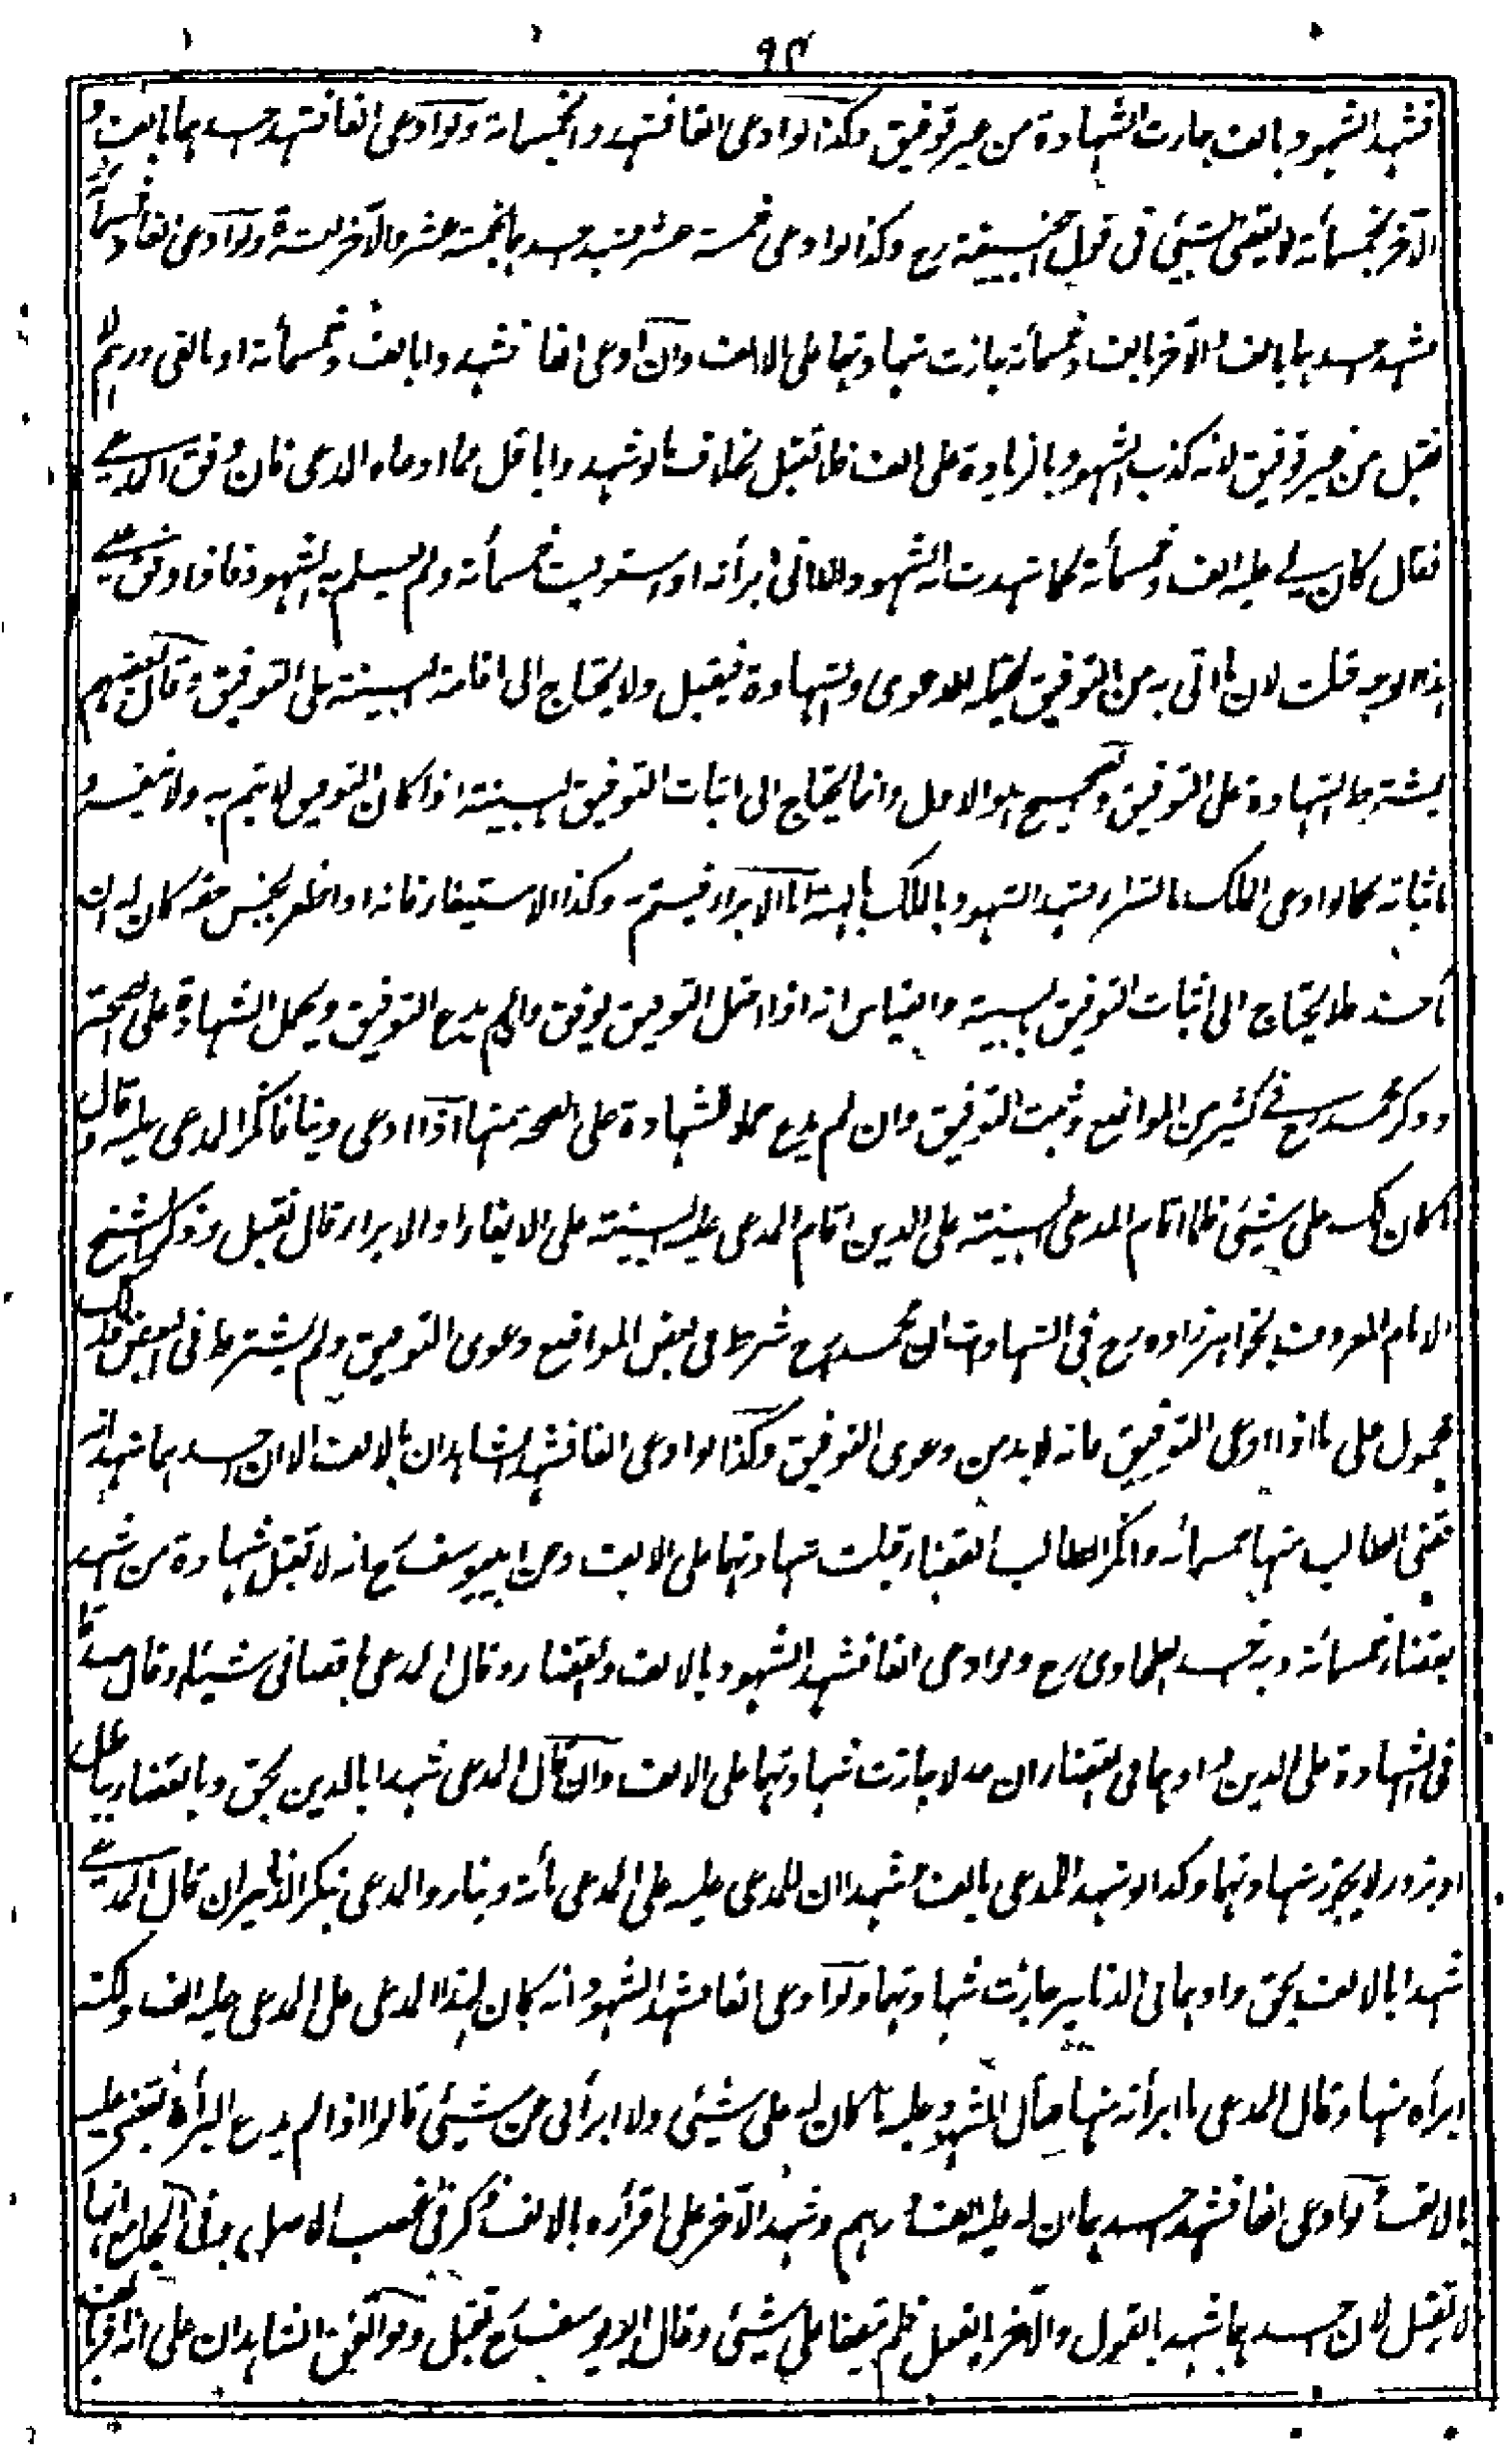 ٩٤
فشهد الشهود بالف جازت الشهادة من غير توفيق وكذا لو ادعى الفا فشهدوا بخمسمائة ولو ادعى الفا فشهد احدهما بالف و
الآخر بخمسمائة لا يقضى بشيئ فى قول ابيحنيفة رح وكذا لو ادعى خمسة عشر فشهد احدهما بخمسة عشر والآخر بعشرة ولو ادعى الفا وخمسمائة
فشهد احدهما بالف والآخر بالف وخمسمائة جازت شهادتهما على الالف وان ادعى الفا فشهدوا بالف وخمسمائة او بالفى درهم لا
تقبل من غير توفيق لانه كذب الشهود بالزيادة على الف فلا تقبل بخلاف ما لو شهدوا باقل مما ادعاه المدعى فان وفق المدعى
فقال كان لى عليه الف وخمسمائة كما شهدت به الشهود الا انى ابرأته او استوفيت خمسمائة ولم يعلم به الشهود فاذا وفق على
هذا الوجه قبلت لان ما اتى به من التوفيق يحتمله الدعوى والشهادة فيقبل ولا يحتاج الى اقامة البينة على التوفيق وقال بعضهم
يشترط الشهادة على التوفيق والصحيح هو الاول وانما يحتاج الى اثبات التوفيق بالبينة اذا كان التوفيق لا يتم به ولا ينفرد
باثباته كما لو ادعى الملك بالشراء فشهد الشهود بالملك بالهبة اما الابراء فيتم به وكذا الاستيفاء فانه اذا ظفر بجنس حقه كان له ان
يأخذ فلا يحتاج الى اثبات التوفيق بالبينة والقياس انه اذا احتمل التوفيق يوفق وان لم يدع التوفيق ويحمل الشهادة على الصحة
وذكر محمد رح فى كثير من المواضع وثبت التوفيق وان لم يدع حملا للشهادة على الصحة منها اذا ادعى دينا فانكر المدعى عليه وقال
ما كان لك على شيئ فلما اقام المدعى البينة على الدين اقام المدعى عليه البينة على الايفاء او الابراء قال تقبل وذكر الشيخ
الامام المعروف بخواهر زاده رح فى الشهادات ان محمدا رح شرط فى بعض المواضع دعوى التوفيق ولم يشترط فى البعض وذلك
محمول على ما اذا ادعى التوفيق فانه لا بد من دعوى التوفيق وكذا لو ادعى الفا فشهد الشاهدان بالالف الا ان احدهما شهد انه
قضى الطالب منها خمسمائة وانكر الطالب القضاء قبلت شهادتهما على الالف وعن ابييوسف رح انه لا تقبل شهادة من شهد
بقضاء خمسمائة وبه اخذ الطحاوى رح ولو ادعى الفا فشهد الشهود بالالف والقضاء وقال المدعى ما قضانى شيئا وقال صدقا
فى الشهادة على الدين واوهما فى القضاء ان عدلا جازت شهادتهما على الالف وان قال المدعى شهدا بالدين بحق وبالقضاء بباطل
او بزور لا يجوز شهادتهما وكذا لو شهدا للمدعى بالف وشهدا ان للمدعى عليه على المدعى مائة دينار والمدعى ينكر الدنانير ان قال المدعى
شهدا بالالف بحق واوهما فى الدنانير جازت شهادتهما ولو ادعى الفا فشهد الشهود انه كان لهذا المدعى على المدعى عليه الف ولكنه
ابرأه منها وقال المدعى ما ابرأته منها وقال المشهود عليه ما كان له على شيئ ولا ابرأنى عن شيئ قالوا اذا لم يدع البرأة يقضى عليه
بالالف ولو ادعى الفا فشهد احدهما ان له عليه الف درهم وشهد الآخر على اقراره بالالف ذكر فى غصب الاصل وفى الجامع انها
لا تقبل لان احدهما شهد بالقول والآخر بالفعل فلم يتفقا على شيئ وقال ابو يوسف رح تقبل ولو اتفق الشاهدان على اقراره بالف